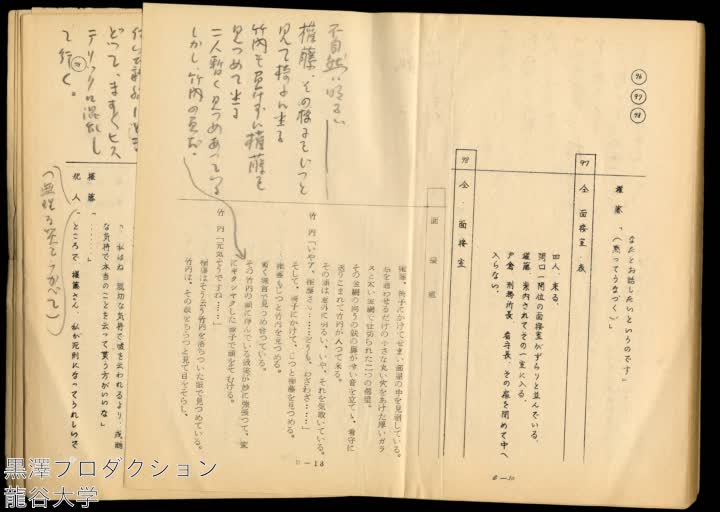 96
97
98
権藤「
なたとお話したいというのです」
(黙ってうなづく)」
97 仝 面接室 表
四人、来る。
間口一間位の面接室がずらりと並んでいる。
権藤、案内されてその一室に入る。
戸倉、刑務所長、看守長、その扉を閉めて中へ
入らない。
98 仝 面接室
B—30
面接室
権藤、椅子にかけてせまい部屋の中を見廻している。
声を通わせるだけの小さな丸い穴をあけた厚いガラ
スと太い金網で仕切られた二つの部屋。
その金網の向うの鉄の扉が重い音を立てゝ、看守に
送りこまれて竹内が入って来る。
その顔は意外に明るい、いや、それを気取っている。
竹内「いやア、権藤さん……どうも、わざわざ……」
そして、椅子にかけて、じっと権藤を見つめる。
権藤もじっと竹内を見つめる。
暫く無言で見つめ合っている。
その竹内の顔に浮んでいる微笑が妙に強張って、変
にギクシャクした調子で顔をそむける。
竹内「元気そうですね……」
権藤はそう云う竹内を落ちついた眼で見つめている。
竹内は、その眼をちらっと見て目をそらし、
B—18
不自然に明るい
権藤、その様子をじっと
見て椅子に坐る
竹内も負けずに権藤を
見つめて坐る
二人暫く見つめあっている
しかし、竹内の頬が、
どって、ますますヒス
テリックに混乱し
て行く。
権藤「……」
「、私はね、親切な気持で嘘を云われるより、残酷
な気持で本当のことを云って貰う方がいいな」
犯人「ところで、権藤さん、私が死刑になってうれしいで
(無理な笑てうかべて)
黒澤プロダクション
龍谷大学